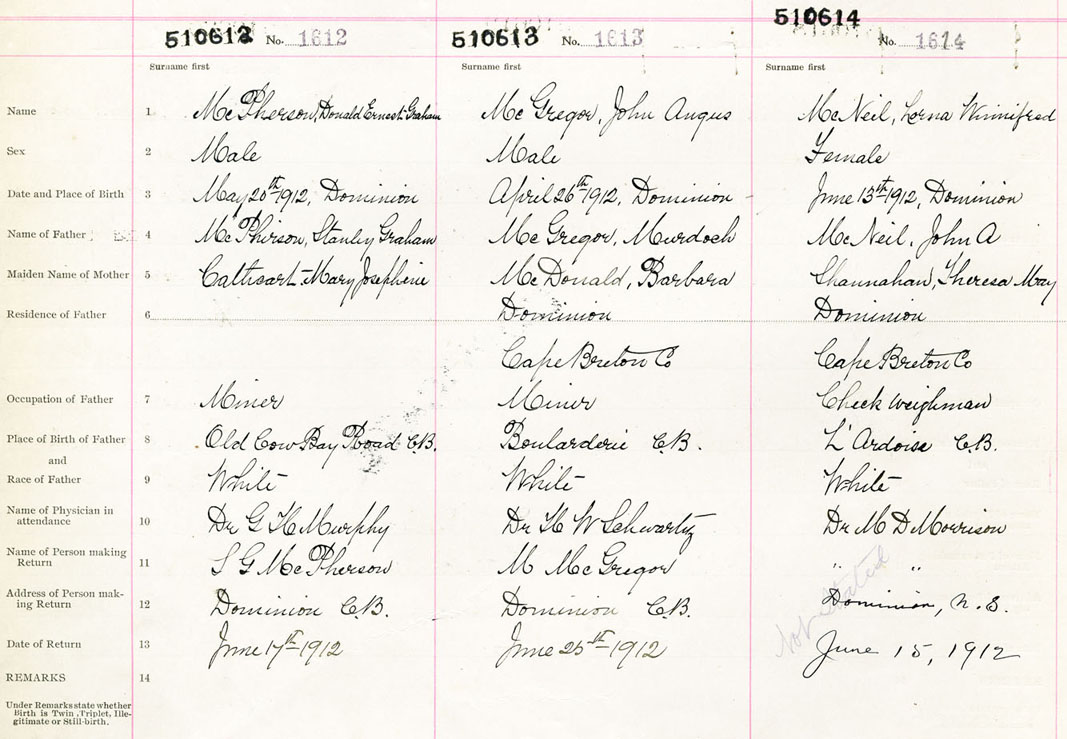 510612 No. 1612 510613 No. 1613 510614 No. 1614
Surname first Surname first Surname first
Name 1 McPherson, Donald Ernest Graham McGregor, John Angus McNeil, Lorna Winnifred
Sex 2 Male Male Female
Date and Place of Birth 3 May 20th 1912, Dominion April 26th 1912, Dominion June 13th 1912, Dominion
Name of Father 4 McPherson, Stanley Graham McGregor, Murdoch McNeil, John A
Maiden Name of Mother 5 Cathcart, Mary Josephine McDonald, Barbara Shannahan, Theresa May
Residence of Father 6 Dominion Dominion
Cape Breton Co Cape Breton Co
Occupation of Father 7 Miner Miner Check weighman
Place of Birth of Father 8 Old Cow Bay Road C.B. Boularderie C.B. L'Ardoise C.B.
and
Race of Father 9 White White White
Name of Physician in
attendance 10 Dr G H Murphy Dr H W Schwartz Dr M D Morrison
Name of Person making
Return 11 S G McPherson M McGregor " "
Address of Person mak-
ing Return 12 Dominion C.B. Dominion C.B. Dominion, N.S.
Not stated
Date of Return 13 June 17th 1912 June 25th 1912 June 15, 1912
REMARKS 14
Under Remarks state whether
Birth is Twin, Triplet, Ille-
gitimate or Still-birth.